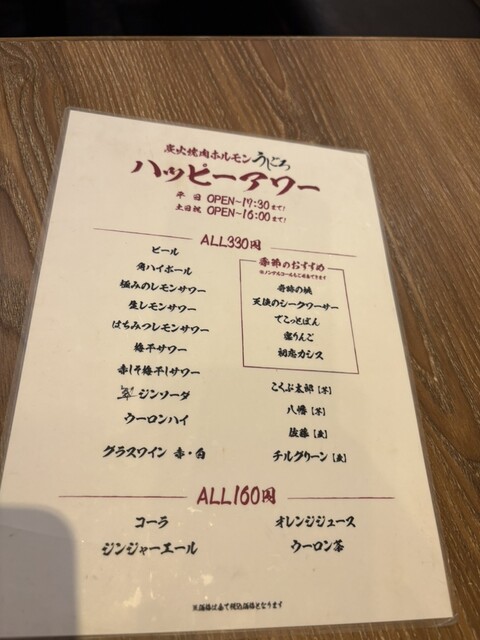 炭火焼肉ホルモン うしごろ
ハッピーアワー
平 日 OPEN~17:30まで!
土日祝 OPEN~16:00まで!
ALL330円
ビール
角ハイボール
極みのレモンサワー
生レモンサワー
はちみつレモンサワー
梅干サワー
赤しそ梅干しサワー
翠ジンソーダ
ウーロンハイ
グラスワイン 赤・白
季節のおすすめ
※ノンアルコールもご用意できます
奇跡の桃
天使のシークワーサー
でこっとぽん
蜜りんご
初恋カシス
こくぶ太郎【芋】
八幡【芋】
佐藤【麦】
チルグリーン【麦】
ALL160円
コーラ
ジンジャーエール
オレンジジュース
ウーロン茶
※価格は全て税込価格となります